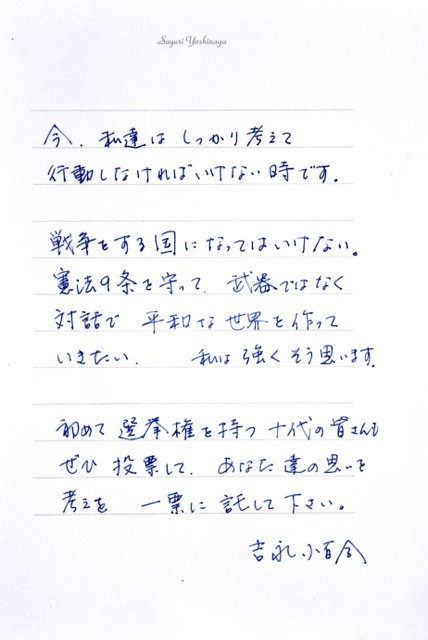 Sayuri Yoshinaga
今、私達は しっかり考えて
行動しなければいけない時です。
戦争をする国になってはいけない。
憲法9条を守って、武器ではなく
対話で 平和な世界を作って
いきたい。 私は強くそう思います。
初めて選挙権を持つ十代の皆さんも
ぜひ投票して、あなた達の思いと
考えを 一票に託して下さい。
吉永小百合